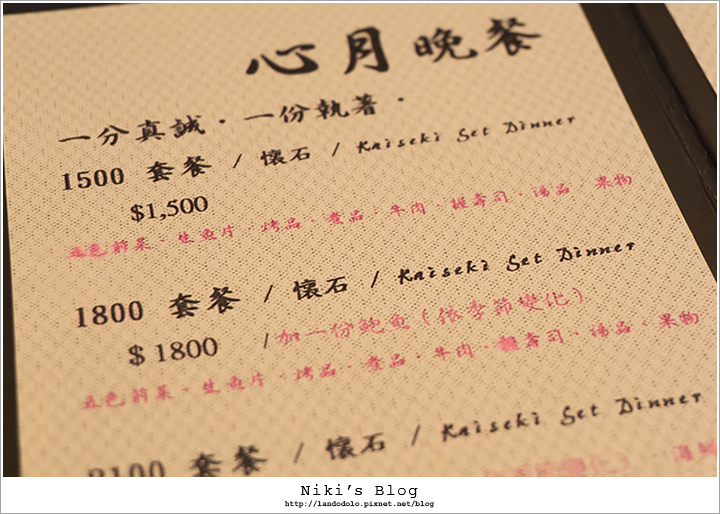 心月晚餐
一分真誠．一份執著．
1500 套餐 / 懷石 / Kaiseki Set Dinner
$1,500
五色前菜．生魚片．烤品．煮品．牛肉．握壽司．湯品．果物
1800 套餐 / 懷石 / Kaiseki Set Dinner
$ 1800 /加一份鮑魚(依季節變化)
五色前菜．生魚片．烤品．煮品．牛肉．握壽司．湯品．果物
2100 套餐 / 懷石 / Kaiseki Set Dinner
Niki's Blog
http://landodolo.pixnet.net/blog